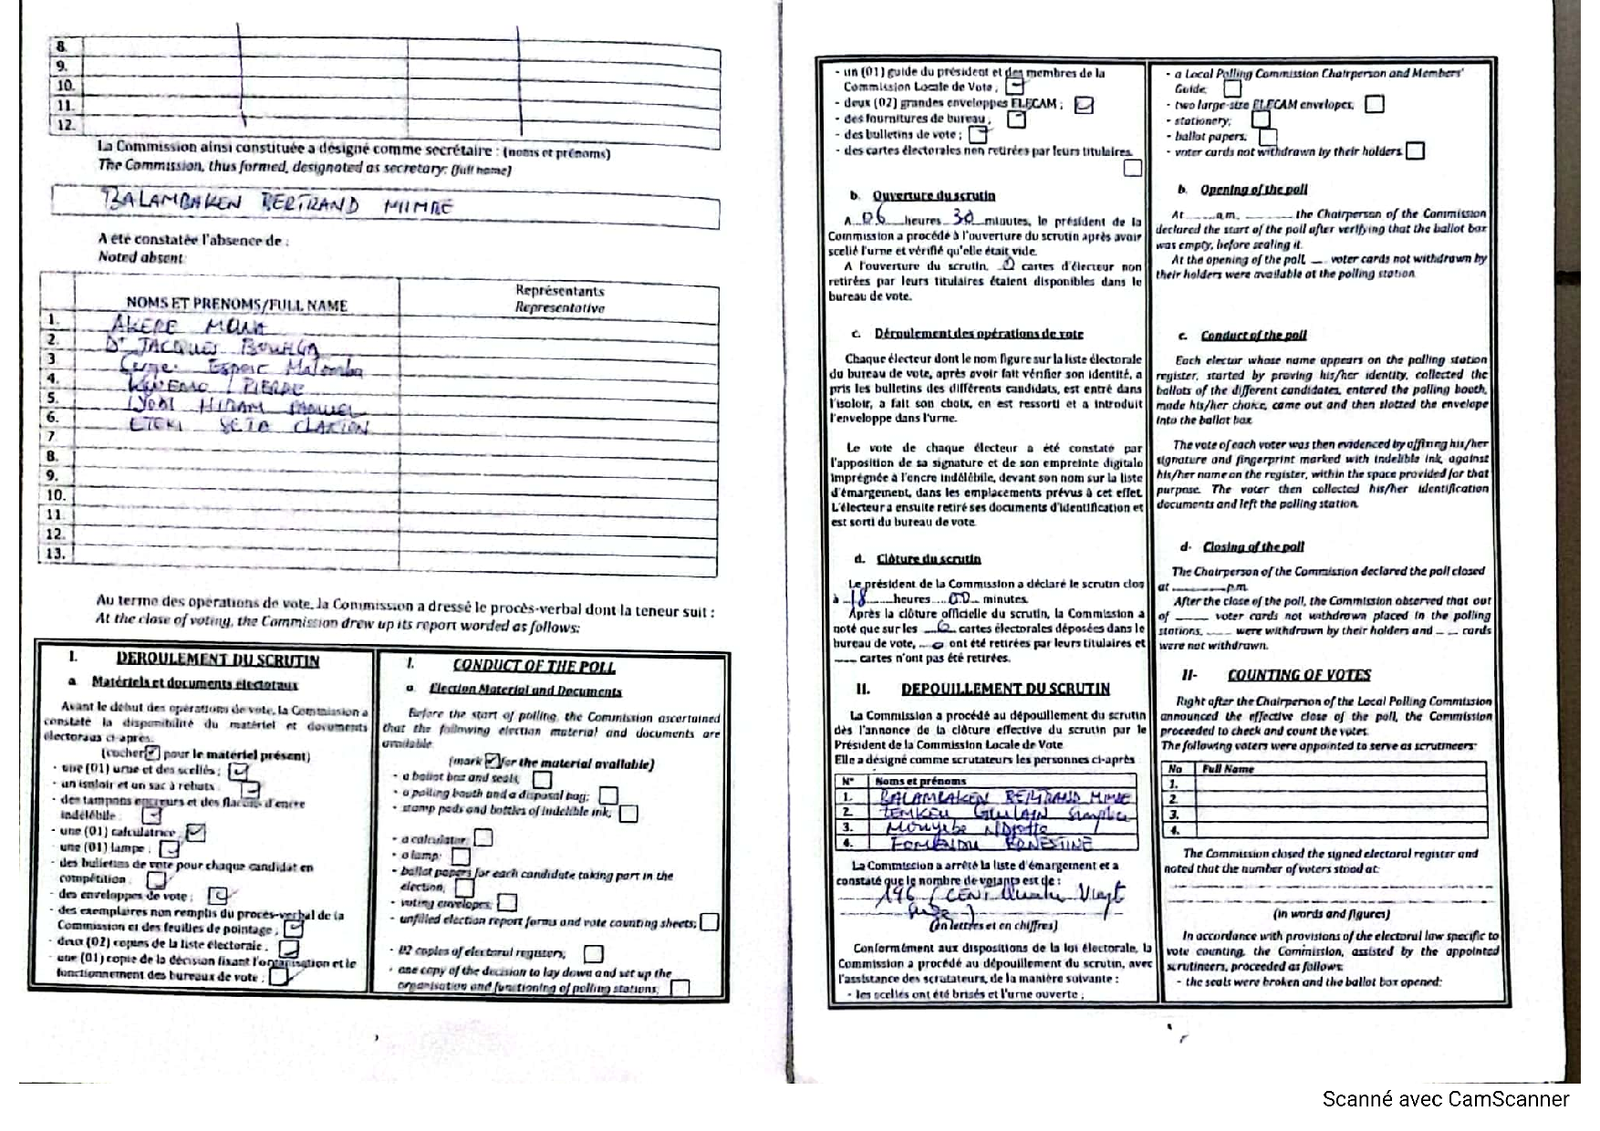 8.
9.
10.
11.
12.
La Commission ainsi constituée a désigné comme secrétaire : (noms et prénoms)
The Commission, thus formed, designated as secretary: (full name)
BALAMBAKEN BERTRAND MIMBE
A été constatée l'absence de :
Noted absent:
NOMS ET PRENOMS/FULL NAME
Représentants
Representative
1. AKERE MUNA
2. Dr JACQUES BOUHGA
3. Serge Espoir Matomba
4. KWEMO PIERRE
5. HIRAM SAMUEL
6. CLARION
7.
8.
9.
10.
11.
12.
13.
Au terme des opérations de vote, la Commission a dressé le procès-verbal dont la teneur suit :
At the close of voting, the Commission drew up its report worded as follows:
I. DEROULEMENT DU SCRUTIN
a Matériels et documents électoraux
Avant le début des opérations de vote, la Commission a
constaté la disponibilité du matériel et documents
électoraux ci-après:
(cocher pour le matériel présent)
- une (01) urne et des scellés ;
- un isoloir et un sac à rebuts ;
- des tampons encreurs et des flacons d'encre
indélébile ;
- une (01) calculatrice ;
- une (01) lampe ;
- des bulletins de vote pour chaque candidat en
compétition ;
- des enveloppes de vote ;
- des exemplaires non remplis du procès-verbal de la
Commission et des feuilles de pointage ;
- deux (02) copies de la liste électorale ;
- une (01) copie de la décision fixant l'organisation et le
fonctionnement des bureaux de vote ;
I. CONDUCT OF THE POLL
a Election Material and Documents
Before the start of polling, the Commission ascertained
that the following election material and documents are
available
(mark for the material available)
- a ballot box and seals;
- a polling booth and a disposal bag;
- stamp pads and bottles of indelible ink;
- a calculator;
- a lamp;
- ballot papers for each candidate taking part in the
election;
- voting envelopes;
- unfilled election report forms and vote counting sheets;
- 02 copies of electoral registers;
- one copy of the decision to lay down and set up the
organisation and functioning of polling stations;
- un (01) guide du président et des membres de la
Commission Locale de Vote ;
- deux (02) grandes enveloppes ELECAM ;
- des fournitures de bureau ;
- des bulletins de vote ;
- des cartes électorales non retirées par leurs titulaires.
b. Ouverture du scrutin
A 06 heures 30 minutes, le président de la
Commission a procédé à l'ouverture du scrutin après avoir
scellé l'urne et vérifié qu'elle était vide.
A l'ouverture du scrutin, 0 cartes d'électeur non
retirées par leurs titulaires étaient disponibles dans le
bureau de vote.
c. Déroulement des opérations de vote
Chaque électeur dont le nom figure sur la liste électorale
du bureau de vote, après avoir fait vérifier son identité, a
pris les bulletins des différents candidats, est entré dans
l'isoloir, a fait son choix, en est ressorti et a introduit
l'enveloppe dans l'urne.
Le vote de chaque électeur a été constaté par
l'apposition de sa signature et de son empreinte digitale
imprégnée à l'encre indélébile, devant son nom sur la liste
d'émargement, dans les emplacements prévus à cet effet.
L'électeur a ensuite retiré ses documents d'identification et
est sorti du bureau de vote.
d. Clôture du scrutin
Le président de la Commission a déclaré le scrutin clos
à 18 heures 00 minutes.
Après la clôture officielle du scrutin, la Commission a
noté que sur les 0 cartes électorales déposées dans le
bureau de vote, 0 ont été retirées par leurs titulaires et
cartes n'ont pas été retirées.
II. DEPOUILLEMENT DU SCRUTIN
La Commission a procédé au dépouillement du scrutin
dès l'annonce de la clôture effective du scrutin par le
Président de la Commission Locale de Vote
Elle a désigné comme scrutateurs les personnes ci-après
N° Noms et prénoms
1. BALAMBAKEN BERTRAND MIMBE
2. TEMKEU GHISLAIN Simplice
3. Mouyebe Ndjotte
4. FOMENDU ERNESTINE
La Commission a arrêté la liste d'émargement et a
constaté que le nombre de votants est de :
(CENT Quatre Vingt
)
(en lettres et en chiffres)
Conformément aux dispositions de la loi électorale, la
Commission a procédé au dépouillement du scrutin, avec
l'assistance des scrutateurs, de la manière suivante :
- les scellés ont été brisés et l'urne ouverte ;
- a Local Polling Commission Chairperson and Members'
Guide;
- two large-size ELECAM envelopes;
- stationery;
- ballot papers;
- voter cards not withdrawn by their holders.
b. Opening of the poll
At a.m, the Chairperson of the Commission
declared the start of the poll after verifying that the ballot box
was empty, before sealing it.
At the opening of the poll, voter cards not withdrawn by
their holders were available at the polling station.
c. Conduct of the poll
Each elector whose name appears on the polling station
register, started by proving his/her identity, collected the
ballots of the different candidates, entered the polling booth,
made his/her choice, came out and then slotted the envelope
into the ballot box.
The vote of each voter was then evidenced by affixing his/her
signature and fingerprint marked with indelible ink, against
his/her name on the register, within the space provided for that
purpose. The voter then collected his/her identification
documents and left the polling station.
d- Closing of the poll
The Chairperson of the Commission declared the poll closed
at p.m.
After the close of the poll, the Commission observed that out
of voter cards not withdrawn placed in the polling
stations, were withdrawn by their holders and cards
were not withdrawn.
II- COUNTING OF VOTES
Right after the Chairperson of the Local Polling Commission
announced the effective close of the poll, the Commission
proceeded to check and count the votes.
The following voters were appointed to serve as scrutineers:
No Full Name
1.
2.
3.
4.
The Commission closed the signed electoral register and
noted that the number of voters stood at:
(in words and figures)
In accordance with provisions of the electoral law specific to
vote counting, the Commission, assisted by the appointed
scrutineers, proceeded as follows:
- the seals were broken and the ballot box opened:
Scanné avec CamScanner